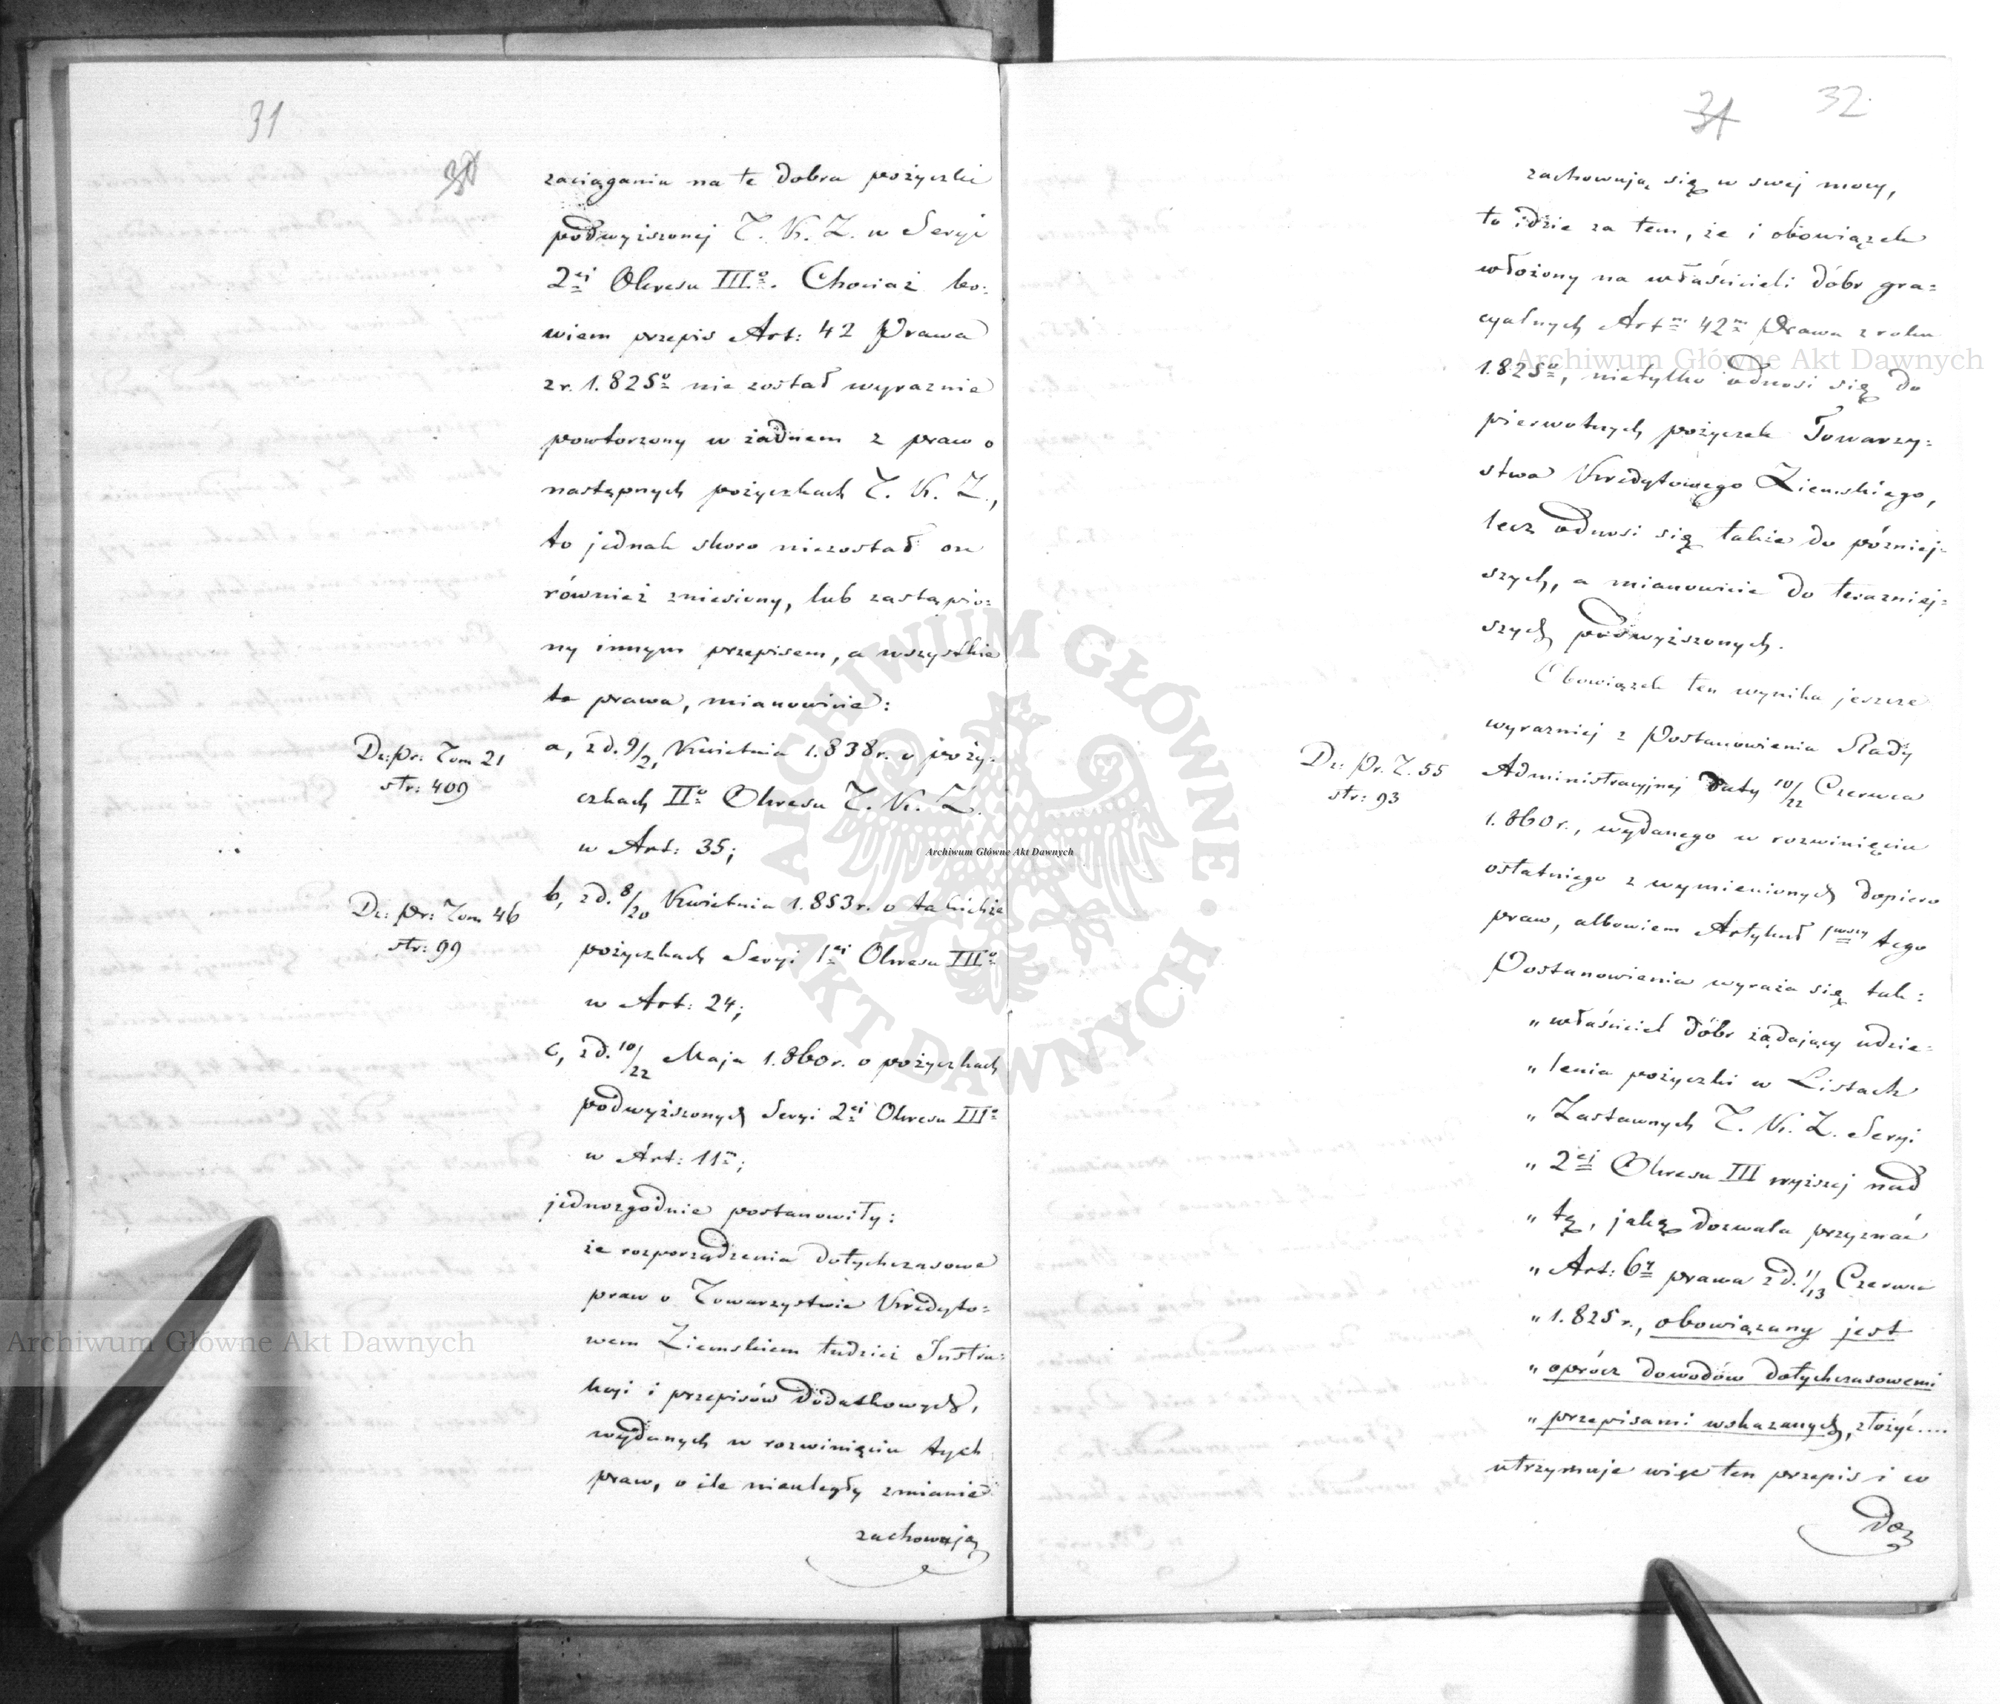 31
30
zaciągania na te dobra pożyczki
podwyższonej T. K. Z. w Seryi
2ej Okresu IIIo. Chociaż bo:
wiem przepis Art: 42 Prawa
z r. 1.825o nie został wyraznie
powtorzony w żadnem z praw o
następnych pożyczkach T. K. Z.,
to jednak skoro niezostał on
również zniesiony, lub zastąpio:
ny innym przepisem, a wszystkie
te prawa, mianowicie:
Dz: Pr: Tom 21
str: 409
a, z d. 9/21 Kwietnia 1.838 r. o poży:
czkach IIo Okresu T. K. Z.
w Art: 35;
Dz: Pr: Tom 46
str: 99
b, z d. 8/20 Kwietnia 1.853 r. o takichże
pożyczkach Seryi 1ej Okresu IIIo
w Art: 24;
c, z d. 10/22 Maja 1.860 r. o pożyczkach
podwyższonych Seryi 2ej Okresu IIIo
w Art: 11m;
jednozgodnie postanowiły:
że rozporządzenia dotychczasowe
praw o Towarzystwie Kredyto:
wem Ziemskiem tudzież Instru:
kcji i przepisów dodatkowych,
wydanych w rozwinięciu tych
praw, o ile nieuległy zmianie
zachowują
31
32
zachowują się w swej mocy,
to idzie za tem, że i obowiązek
włożony na właścicieli dóbr gra=
cyalnych Artm 42m Prawa z roku
1.825o, nietylko odnosi się do
pierwotnych pożyczek Towarzy:
stwa Kredytowego Ziemskiego,
lecz odnosi się także do później:
szych, a mianowicie do terazniej:
szych podwyższonych.
Obowiązek ten wynika jeszcze
wyrazniej z Postanowienia Rady
Dz: Pr. T. 55
str: 93
Administracyjnej daty 10/22 Czerwca
1.860 r., wydanego w rozwinięciu
ostatniego z wymienionych dopiero
praw, albowiem Artykuł 1wszy tego
Postanowienia wyraża się tak:
„ właściciel dóbr żądający udzie:
„ lenia pożyczki w Listach
„ Zastawnych T. K. Z. Seryi
„ 2ej Okresu III wyższej nad
„ tę, jaką dozwala przyznać
„ Art: 6y prawa z d. 1/13 Czerwca
„ 1.825 r., obowiązany jest
„ oprócz dowodów dotychczasowemi
„ przepisami wskazanych, złożyć....
utrzymuje więc ten przepis i w
Archiwum Główne Akt Dawnych
Archiwum Główne Akt Dawnych
Archiwum Główne Akt Dawnych
ARCHIWUM GŁÓWNE AKT DAWNYCH